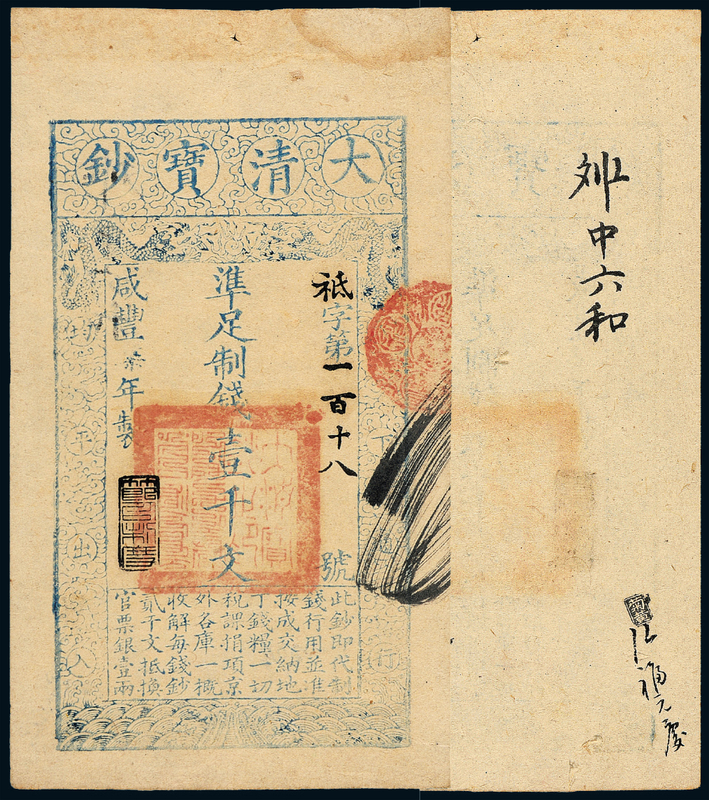 大清寶鈔
天下通行
祗字第一百十八號
準足制錢壹千文
咸豐年製
均平出入
此鈔即代制
錢行用並准
按成交納地
丁錢糧一切
稅課捐項京
外各庫一概
收解每錢鈔
貳千文抵換
官票銀壹兩
中六和